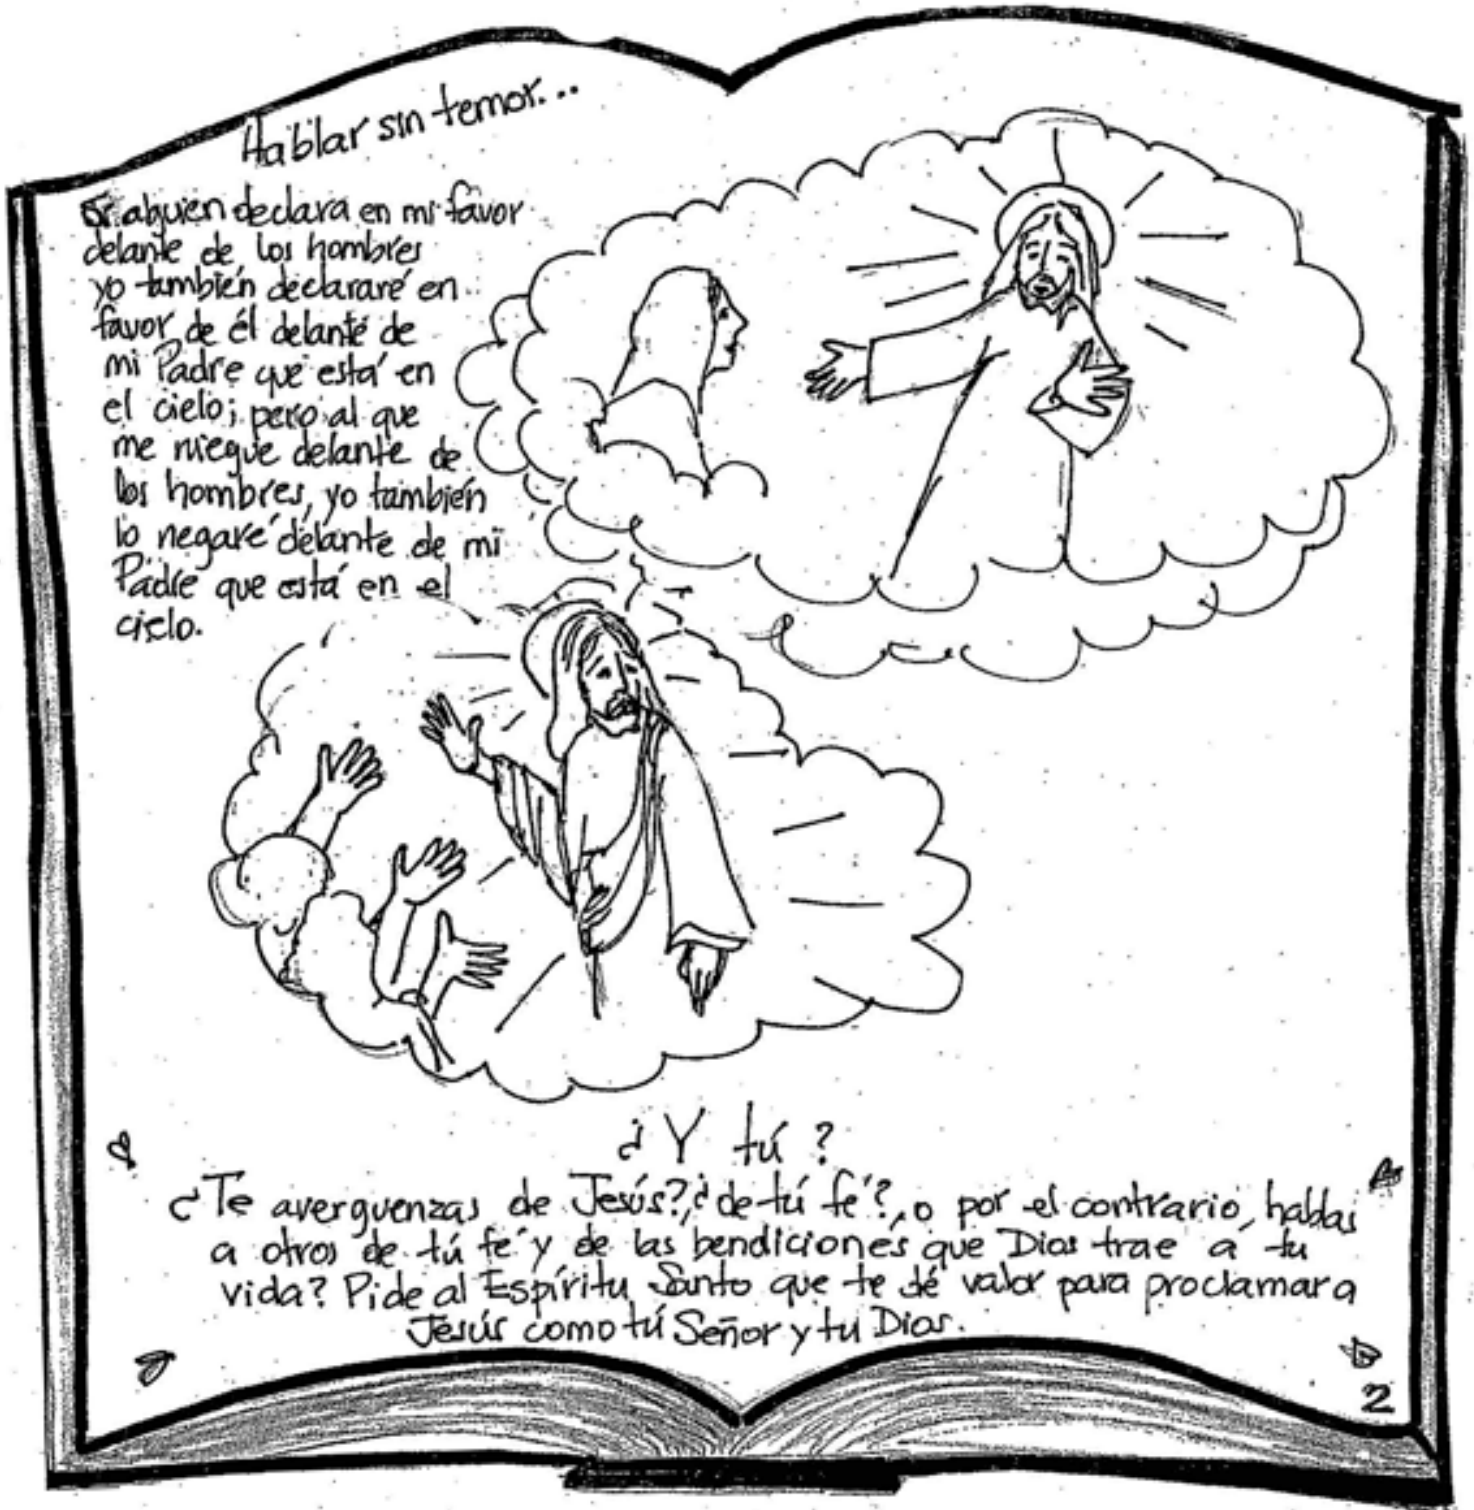 Hablar sin temor...
Si alguien declara en mi favor
delante de los hombres
yo también declararé en
favor de él delante de
mi Padre que está en
el cielo; pero al que
me niegue delante de
los hombres, yo también
lo negaré delante de mi
Padre que está en el
cielo.
¿Y tú?
¿Te averguenzas de Jesús?,¿de tú fé?, o por el contrario, hablas
a otros de tú fé y de las bendiciones que Dios trae a tu
vida? Pide al Espíritu Santo que te dé valor para proclamar a
Jesús como tú Señor y tu Dios.
2